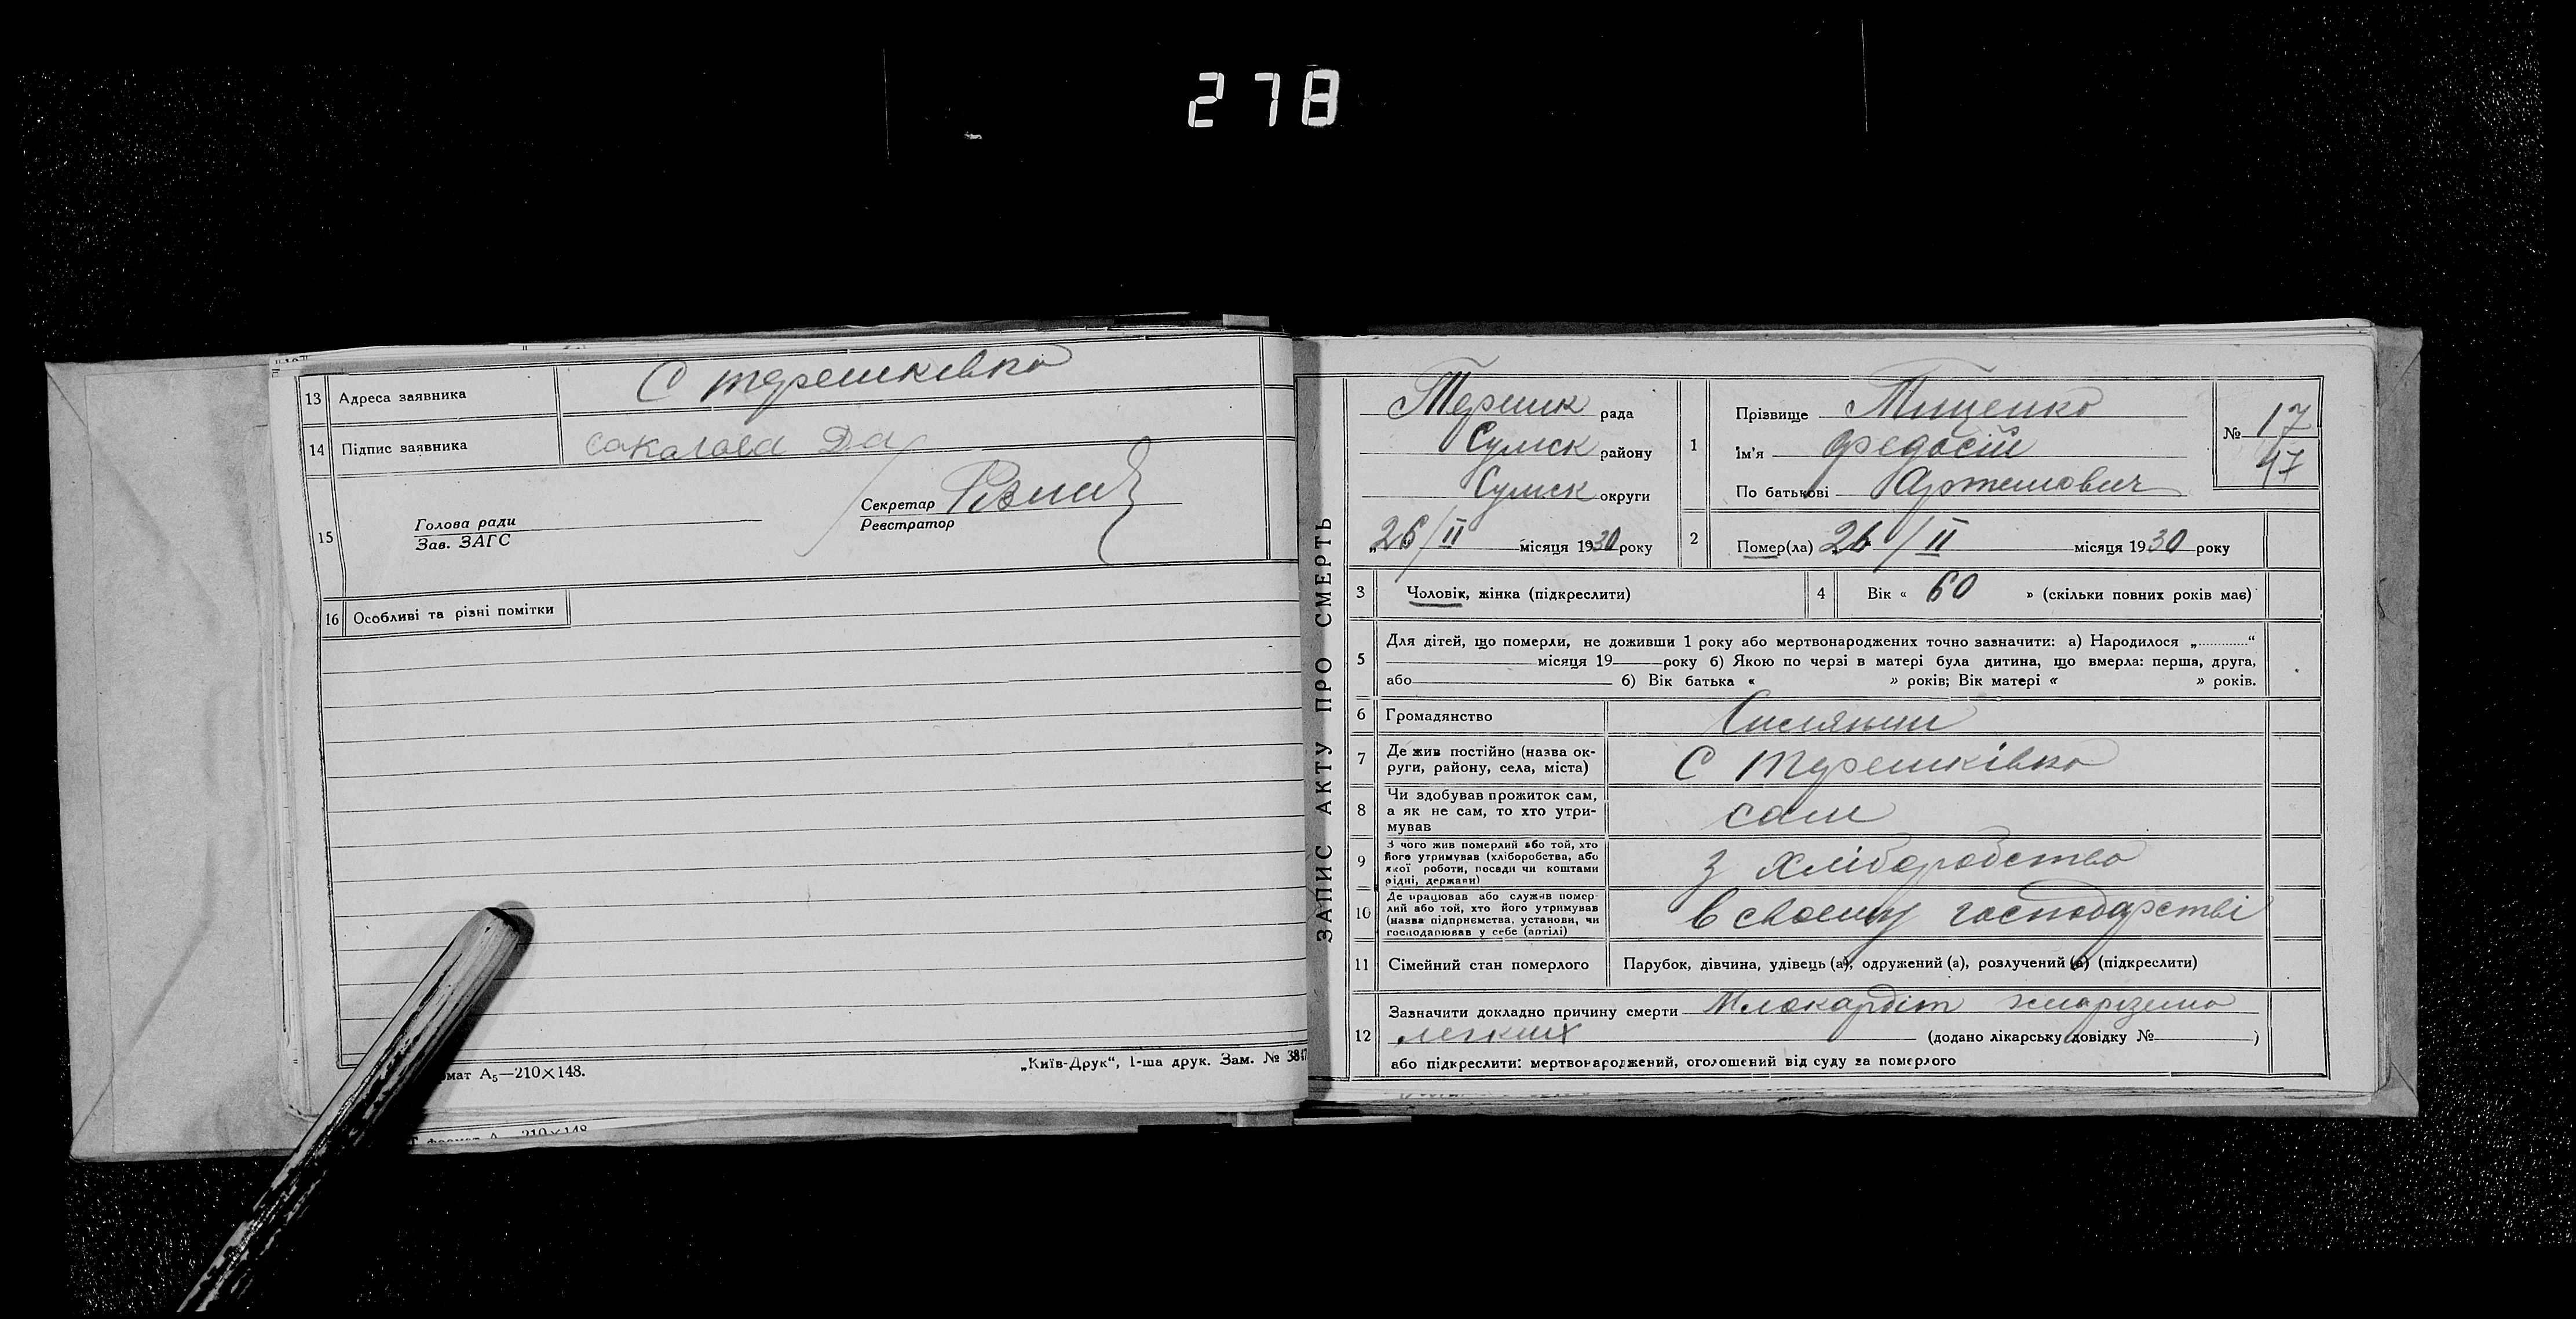 278
13 Адреса заявника С терешківка
14 Підпис заявника
15 Голова ради
Зав. ЗАГС
Секретар
Реєстратор
16 Особливі та різні помітки
мат А5—210×148.
„Київ-Друк“, 1-ша друк. Зам. №
210×148
ЗАПИС АКТУ ПРО СМЕРТЬ
Терешк рада
Сумск району
Сумск округи
„26/II місяця 1930 року
1 Прізвище Тищенко
Ім'я Федосій
По батькові Артемович
№ 17
47
2 Помер(ла) 26/II місяця 1930 року
3 Чоловік, жінка (підкреслити)
4 Вік « 60 » (скільки повних років має)
5 Для дітей, що померли, не доживши 1 року або мертвонароджених точно зазначити: а) Народилося „............“
місяця 19 року б) Якою по черзі в матері була дитина, що вмерла: перша, друга,
або б) Вік батька « » років; Вік матері « » років.
6 Громадянство
7 Де жив постійно (назва ок-
руги, району, села, міста) С Терешківка
8 Чи здобував прожиток сам,
а як не сам, то хто утри-
мував сам
9 З чого жив померлий або той, хто
його утримував (хліборобства, або
якої роботи, посади чи коштами
рідні, держави) З хліборобства
10 Де працював або служив помер-
лий або той, хто його утримував
(назва підприємства, установи, чи
господарював у себе (артілі) в своєму господарстві
11 Сімейний стан померлого Парубок, дівчина, удівець (а), одружений (а), розлучений (а) (підкреслити)
12 Зазначити докладно причину смерти Міокардіт
легких (додано лікарську довідку № )
або підкреслити: мертвонароджений, оголошений від суду за померлого